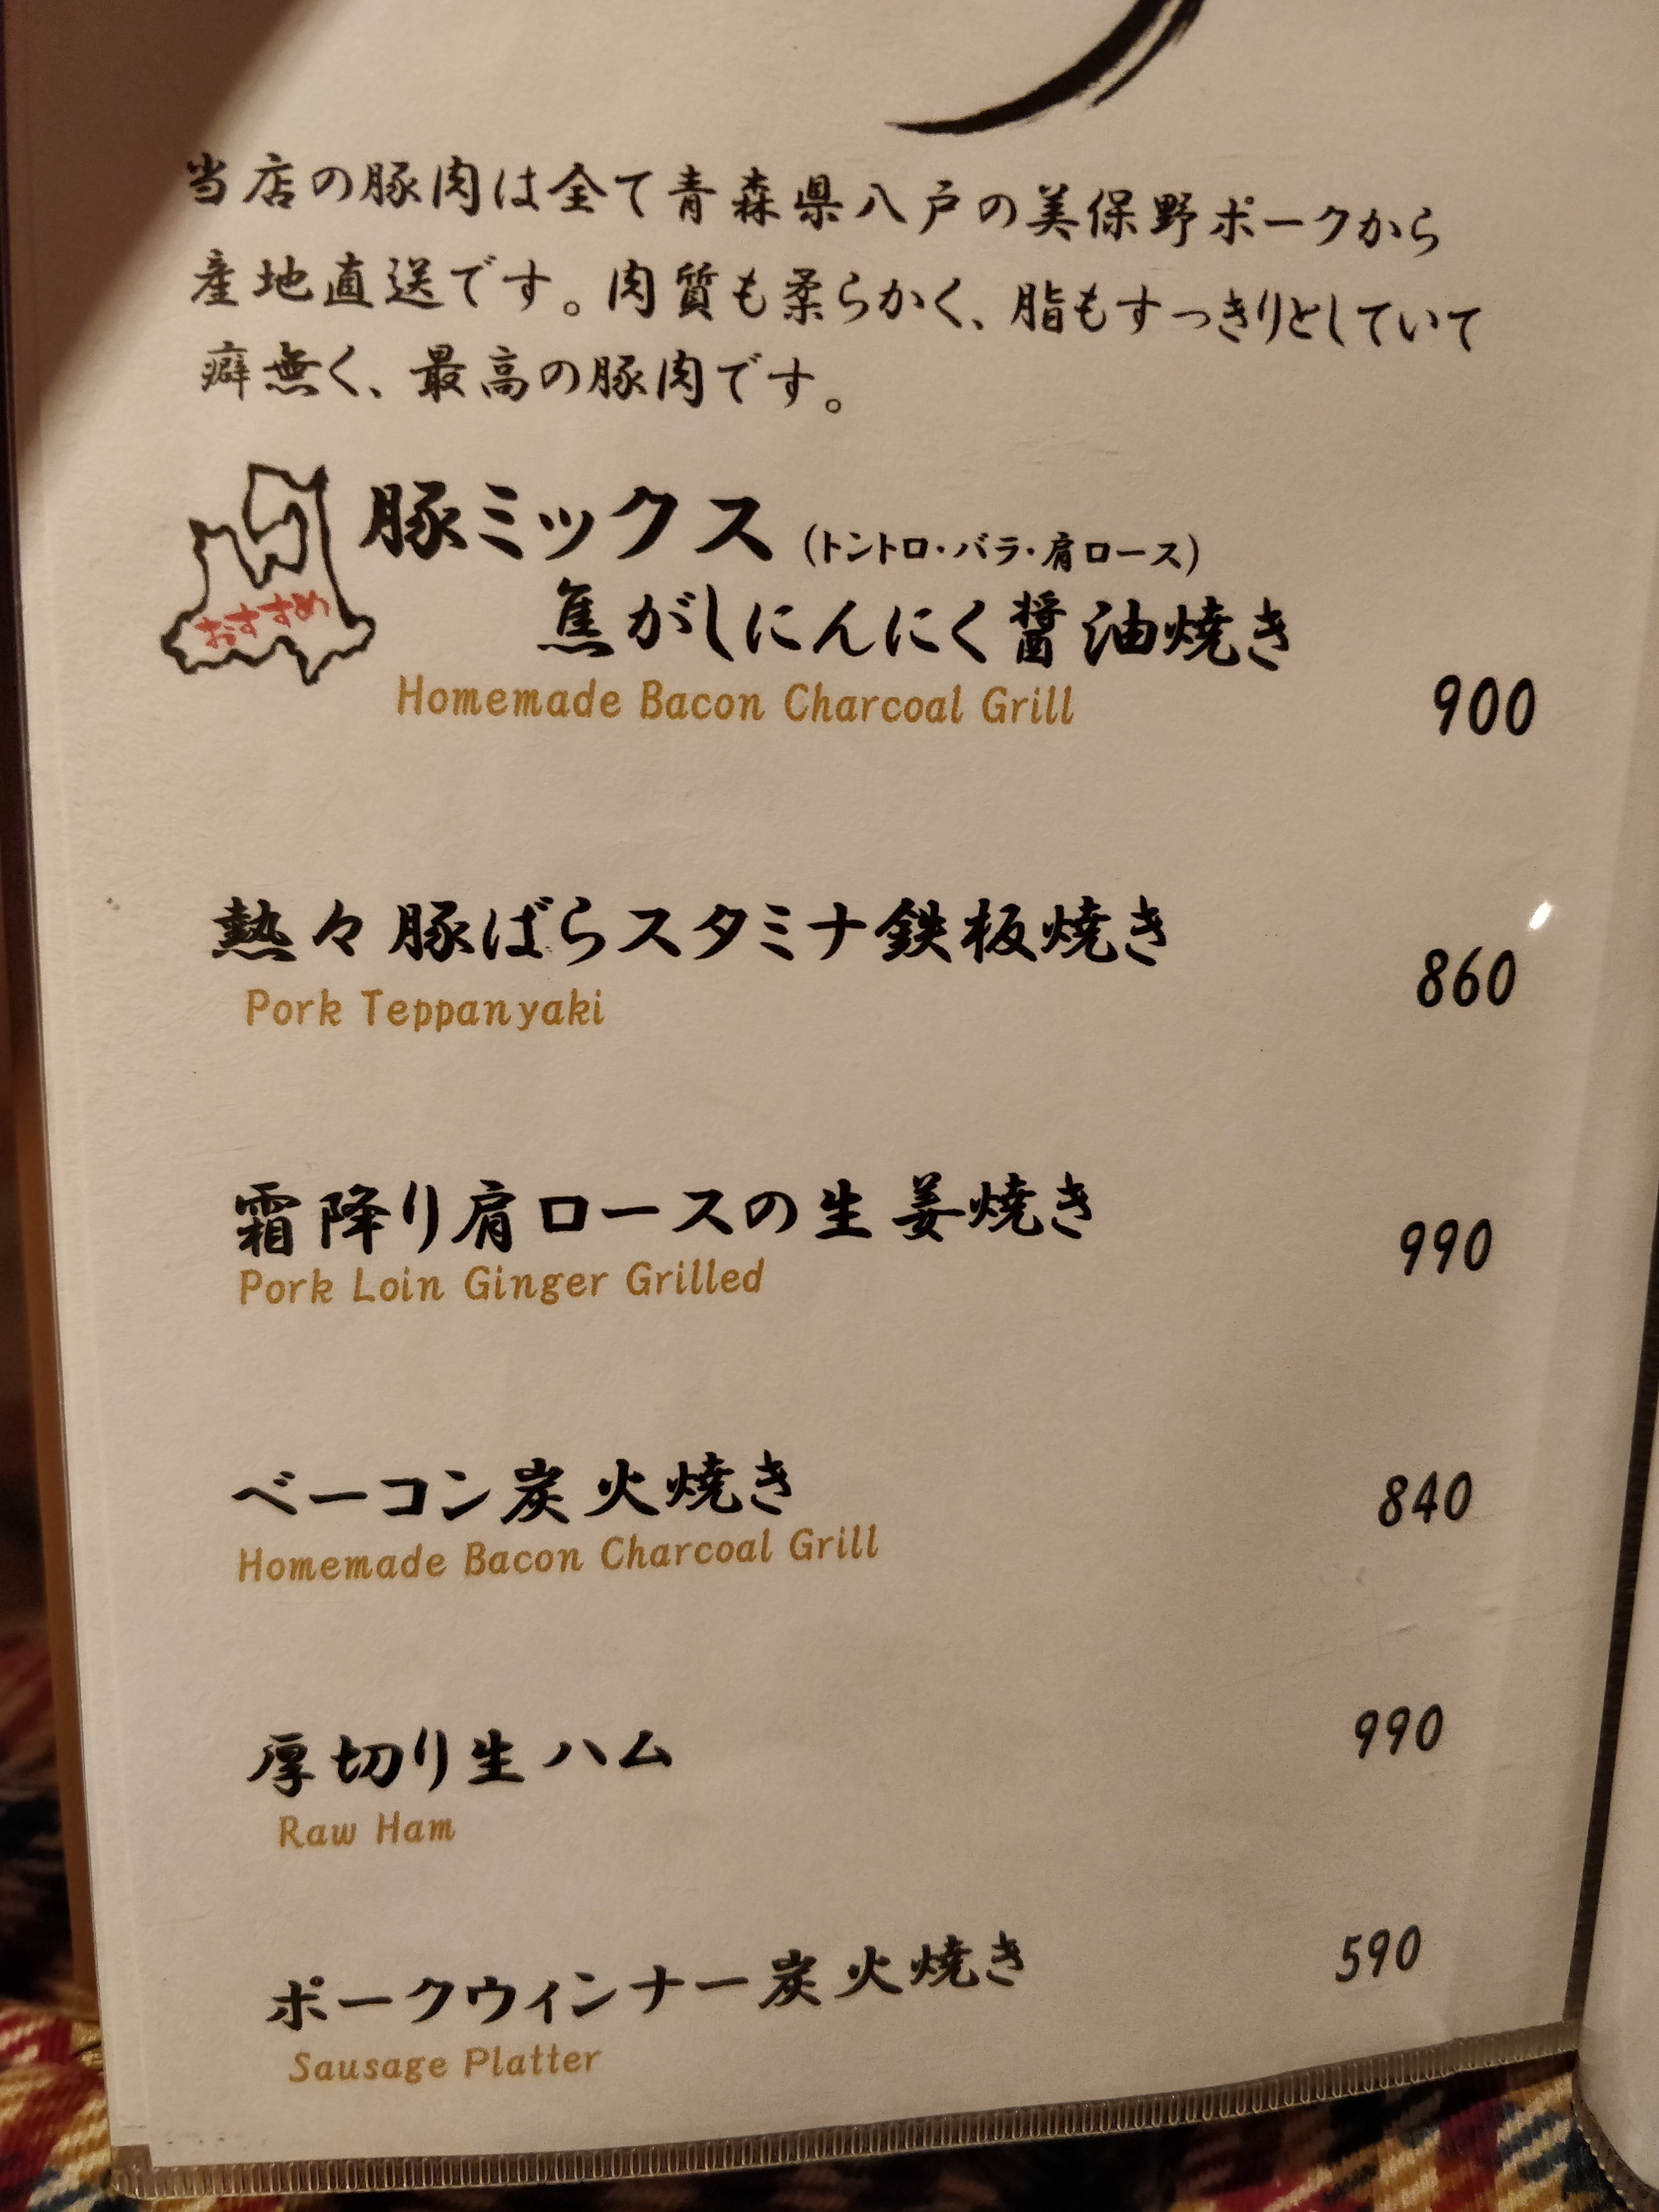 当店の豚肉は全て青森県八戸の美保野ポークから
産地直送です。肉質も柔らかく、脂もすっきりとしていて
癖無く、最高の豚肉です。
おすすめ
豚ミックス (トントロ・バラ・肩ロース)
焦がしにんにく醤油焼き
Homemade Bacon Charcoal Grill 900
熱々豚ばらスタミナ鉄板焼き
Pork Teppanyaki 860
霜降り肩ロースの生姜焼き 990
Pork Loin Ginger Grilled
ベーコン炭火焼き 840
Homemade Bacon Charcoal Grill
厚切り生ハム 990
Raw Ham
ポークウィンナー炭火焼き 590
Sausage Platter